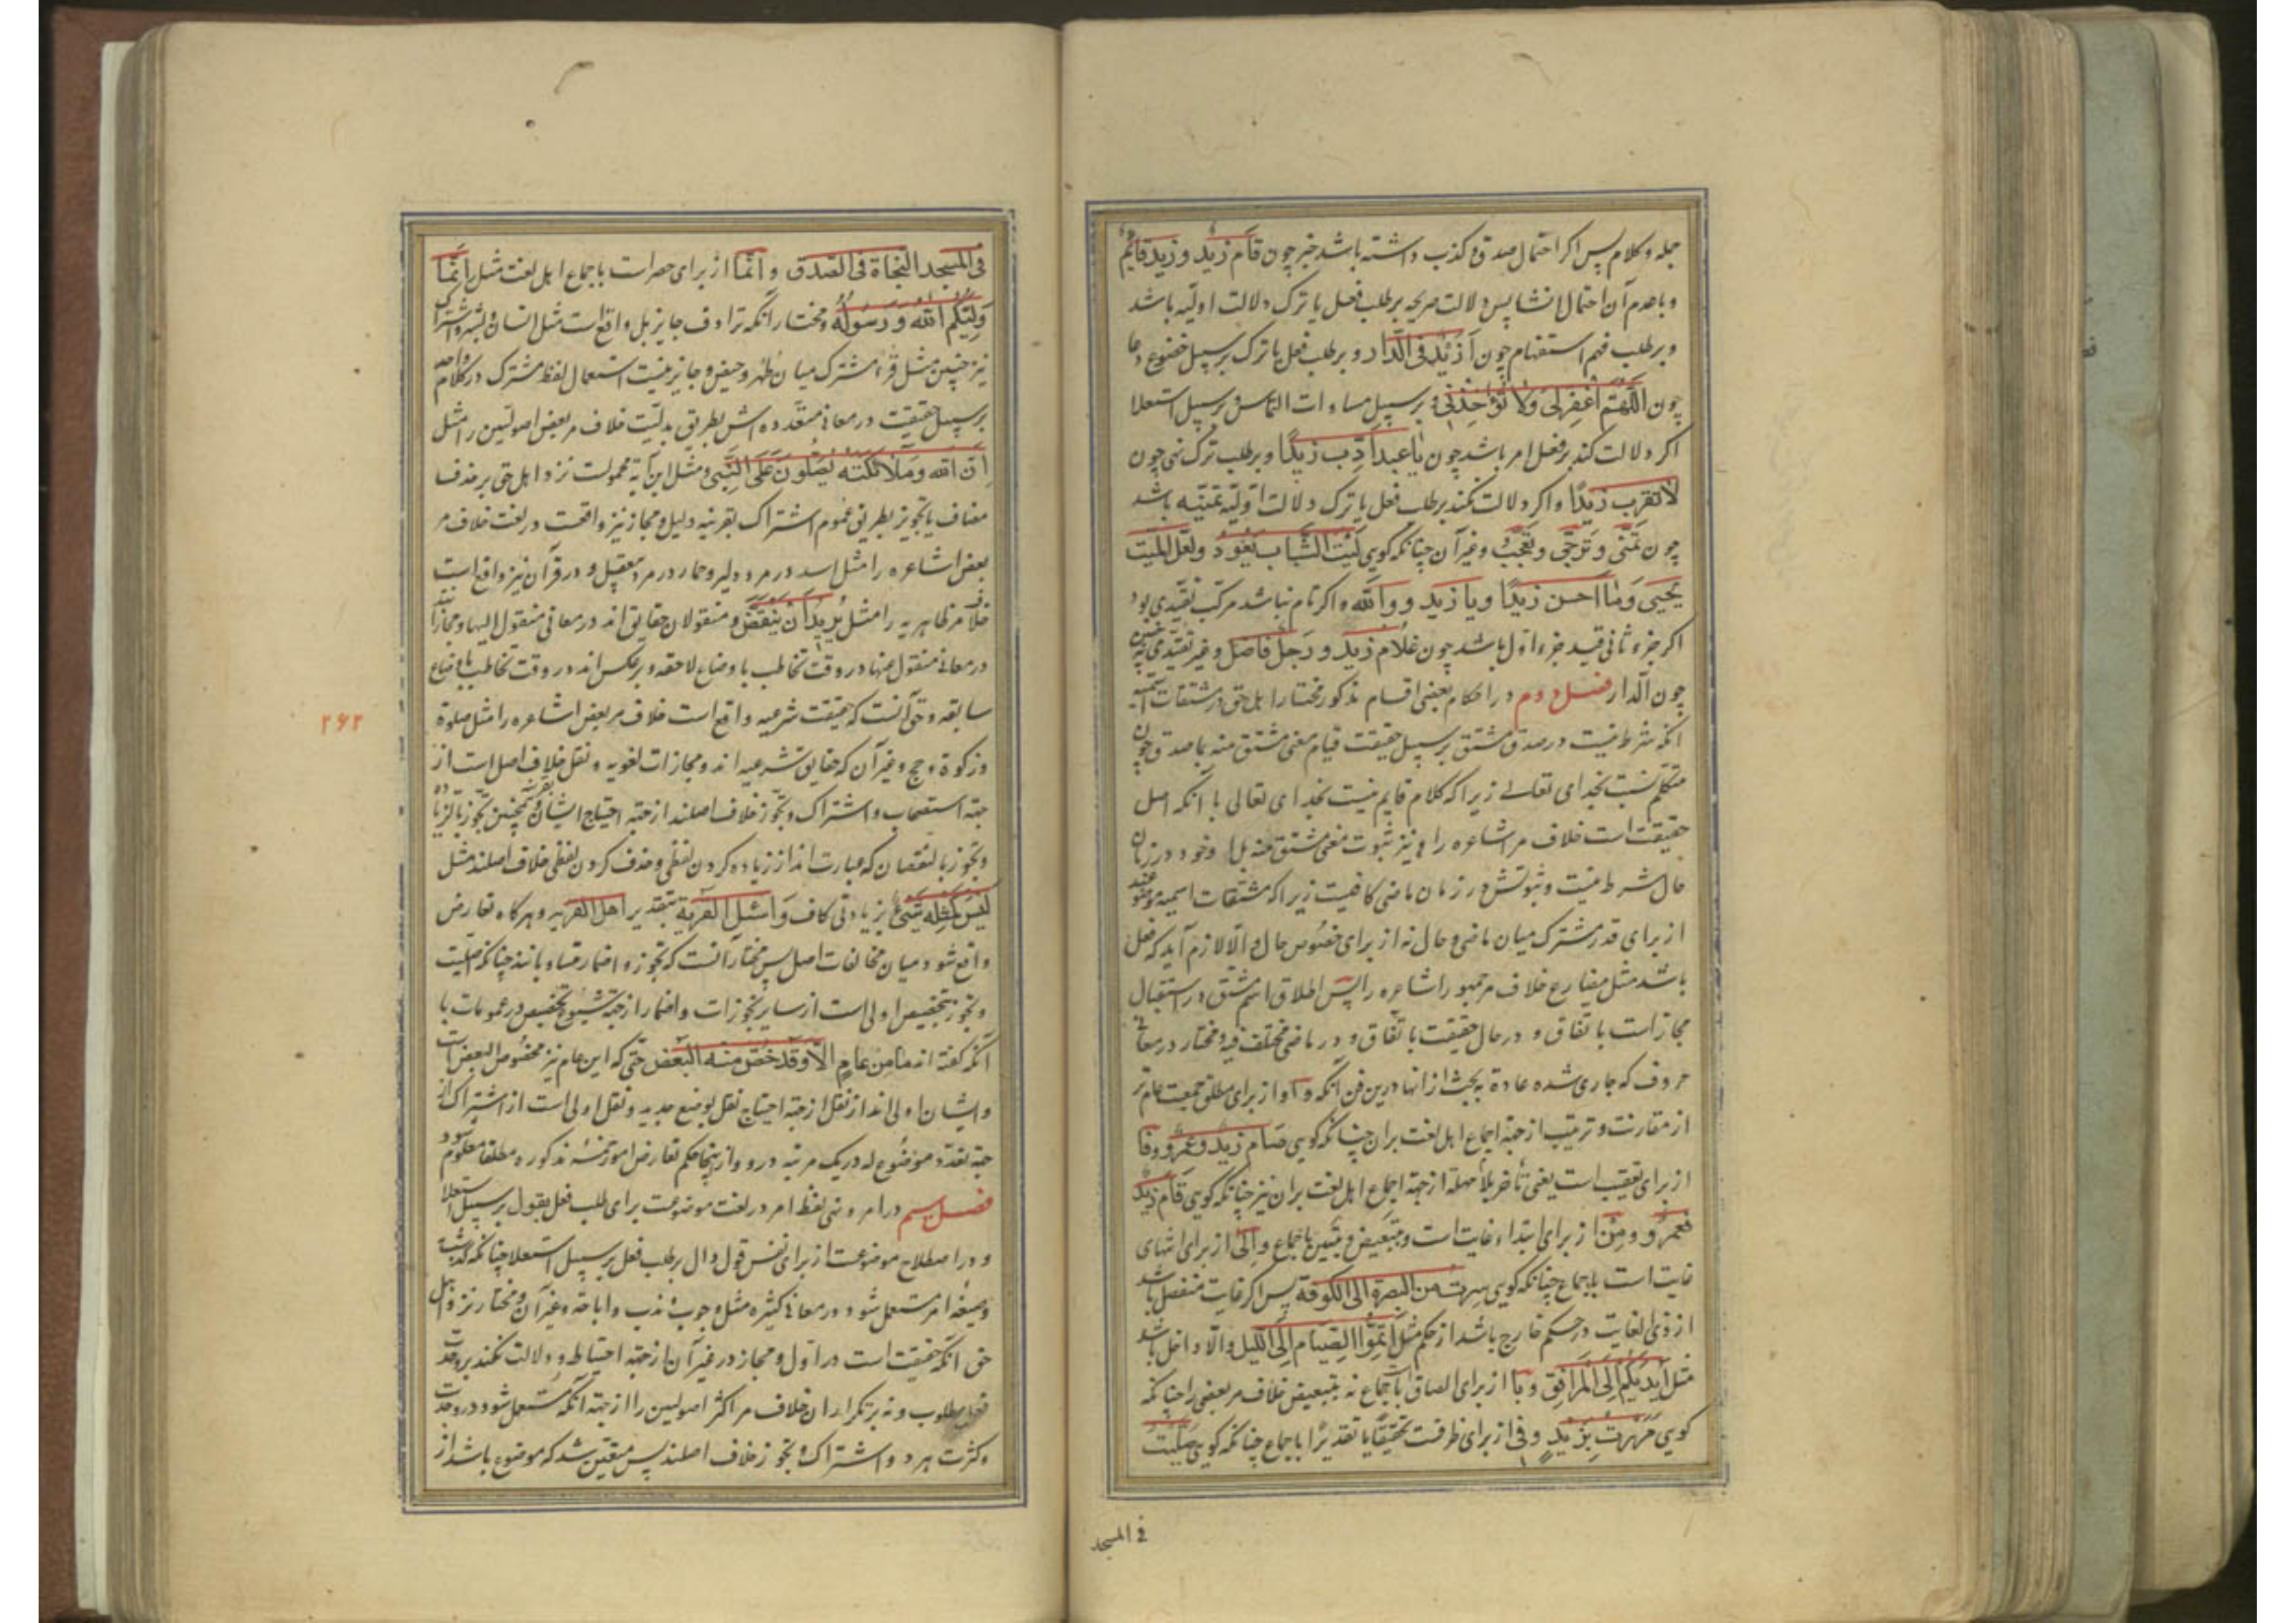 جمله و کلام پس اکر احتمال صدق و کذب داشته باشد خبر چون قام زید و زید قایم
و با عدم آن احتمال انشا پس دلالت صریحه بر طلب فعل یا ترک دلالت اولیه باشد
و بر طلب فهم استفهام چون أزید فی الدار و بر طلب فعل یا ترک بر سبیل خضوع دعا
چون اللهم اغفر لی ولا تؤاخذنی و بر سبیل مساوات التماس و بر سبیل استعلا
اکر دلالت کند بر فعل امر باشد چون یا عبد ادب زیدا و بر طلب ترک نهی چون
لا تقرب زیدا و اکر دلالت نکند بر طلب فعل یا ترک دلالت اولیه تنبیه باشد
چون تمنی و ترجی و تعجب و غیر آن چنانکه کویی لیت الشباب یعود و لعل المیت
یحیی و ما احسن زیدا و یا زید و والله و اکر تام نباشد مرکب تقیدی بود
اکر جزء ثانی قید جزء اول باشد چون غلام زید و رجل فاضل و غیر تقیدی
چون الدار فصل دوم در احکام بعضی اقسام مذکور مختار اهل حق در مشتقات اسمیه
آنکه شرط نیست در صدق مشتق بر سبیل حقیقت قیام معنی مشتق منه بما صدق چون
متکلم نسبت بخدای تعالی زیرا که کلام قایم نیست بخدای تعالی با آنکه اصل
حقیقت است خلاف مر اشاعره را و نیز ثبوت معنی مشتق منه بل وجود در زمان
حال شرط نیست و ثبوتش در زمان ماضی کافیست زیرا که مشتقات اسمیه موضوعند
از برای قدر مشترک میان ماضی و حال نه از برای خصوص حال و الا لازم آید که فعل
باشد مثل مضارع خلاف مر جمهور اشاعره را پس اطلاق اسم مشتق در استقبال
مجاز است باتفاق و در حال حقیقت باتفاق و در ماضی مختلف فیه و مختار در معانی
حروف که جاری شده عادة به بحث از انها درین فن آنکه واو از برای مطلق جمعیت عام تر
از مقارنت و ترتیب از جهة اجماع اهل لغت بران چنانکه کویی صام زید و عمرو و فا
از برای تعقیب است یعنی تأخر بلا مهلة از جهة اجماع اهل لغت بران نیز چنانکه کویی قام زید
فعمرو و من از برای ابتداء غایت است و تبعیض و تبیین باجماع و الی از برای انتهای
غایت است باجماع چنانکه کویی سرت من البصرة الی الکوفة پس اکر غایت منفصل باشد
از ذی الغایت در حکم خارج باشد از حکم مثل اتموا الصیام الی اللیل و الا داخل باشد
مثل ایدیکم الی المرافق و با از برای الصاق باجماع نه تبعیض خلاف مر بعضی را چنانکه
کویی مررت بزید و فی از برای ظرفیت تحقیقا یا تقدیرا باجماع چنانکه کویی صلیت
فی المسجد
فی المسجد النجاة فی الصدق و انما از برای حصر است باجماع اهل لغت مثل انما
ولیکم الله و رسوله و مختار آنکه ترادف جایز بل واقع است مثل انسان و بشر و اشتراک
نیز چنین مثل قرء مشترک میان طهر و حیض و جایز نیست استعمال لفظ مشترک در کلام واحد
بر سبیل حقیقت در معانی متعدده اش بطریق بدلیت خلاف مر بعض اصولیین را مثل
ان الله و ملائکته یصلون علی النبی و مثل این آیة محمولست نزد اهل حق بر حذف
مضاف یا تجویز بطریق عموم اشتراک بقرینه دلیل و مجاز نیز واقعست در لغت خلاف مر
بعض اشاعره را مثل اسد در مرد دلیر و حمار در مرد و در قرآن نیز واقع است
خلاف مر ظاهریه را مثل یرید ان ینقض و منقولات حقایق اند در معانی منقول الیها و مجازاتند
در معانی منقول عنها در وقت تخاطب باوضاع لاحقه و برعکس اند در وقت تخاطب باوضاع
سابقه و حق آنست که حقیقت شرعیه واقع است خلاف مر بعض اشاعره را مثل صلوة
و زکوة و حج و غیر آن که حقایق شرعیه اند و مجازات لغویه و نقل خلاف اصل است از
جهة استصحاب و اشتراک و تجوز خلاف اصلند از جهة احتیاج ایشان بقرینه و همچنین تجوز بالزیاده
و تجوز بالنقصان که عبارت اند از زیاده کردن لفظی و حذف کردن لفظی خلاف اصلند مثل
لیس کمثله شیء بزیادتی کاف و اسئل القریة بتقدیر اهل القریه و هرکاه تعارض
واقع شود میان مخالفات اصل پس مختار آنست که تجوز و اضمار مساویانند چنانکه
و تجوز بتخصیص اولی است از سایر تجوزات و اضمار از جهة شیوع تخصیص در عمومات با
آنکه کفته اند ما من عام الا و قد خص منه البعض حتی که این عام نیز مخصوص البعض است
و ایشان اولی اند از نقل از جهة احتیاج نقل بوضع جدید و نقل اولی است از اشتراک از
جهة تعدد موضوع له در یک مرتبه درو و از اینجا حکم تعارض امور خمسه مذکوره مطلقا معلوم شود
فصل سیم در امر و نهی لفظ امر در لغت موضوعست برای طلب فعل بقول بر سبیل استعلا
و در اصطلاح موضوعست از برای نفس قول دال بر طلب فعل بر سبیل استعلا چنانکه کذشت
و صیغه امر مستعمل شود در معانی کثیره مثل وجوب و ندب و اباحة و غیر آن و مختار نزد اهل
حق آنکه حقیقت است در اول و مجاز در غیر آن از جهة احتیاط و دلالت نکند بر وحدت
فعل مطلوب و نه بر تکرار ان خلاف مر اکثر اصولیین را از جهة آنکه مستعمل شود در وحدت
و کثرت هر دو و اشتراک و تجوز خلاف اصلند پس متعین شد که موضوع باشد از
۲۶۲